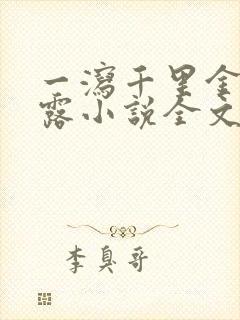 一瀉千里金
露小說全文
李臭哥